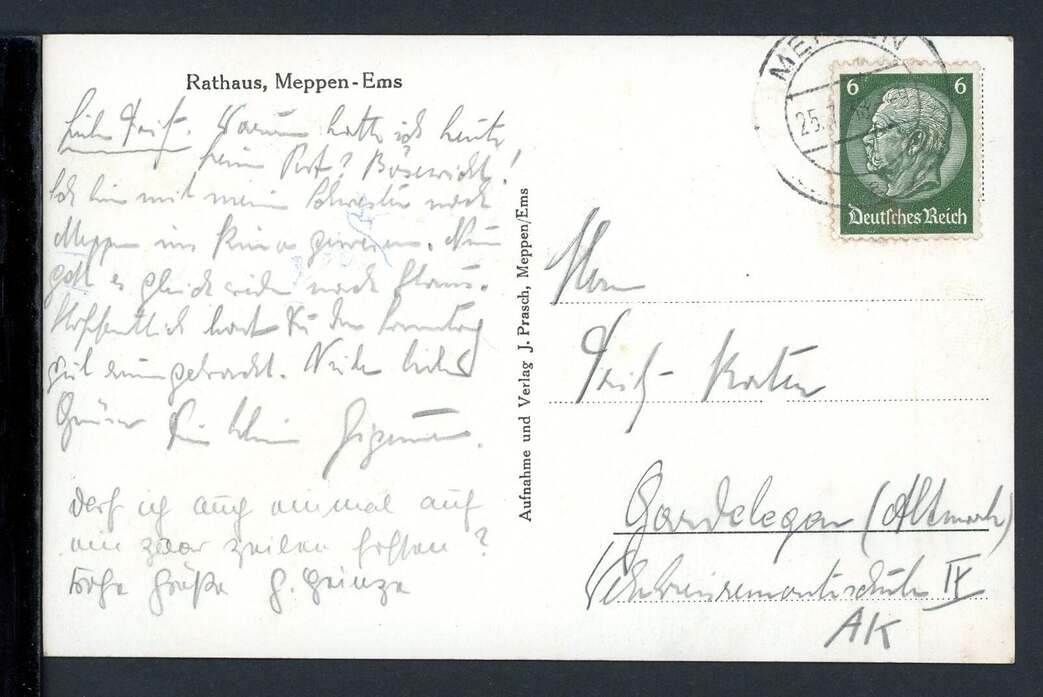 Rathaus, Meppen-Ems
Lieber Fritz. Warum hatte ich heute
keine Post? Bösewicht!
Ich bin mit meiner Schwester nach
Meppen ins Kino gewesen. Nun
geht es gleich wieder nach Haus.
Hoffentlich hast Du den Sonntag
gut rumgebracht. Viele liebe
Grüsse Dein
Darf ich auch einmal auf
ein paar Zeilen hoffen?
Frohe Grüße G. Heinze
Aufnahme und Verlag J. Prasch, Meppen/Ems
MEPPEN
25.
6 6
Deutsches Reich
Herrn
Fritz
Gardelegen (Altmark)
IV
AK